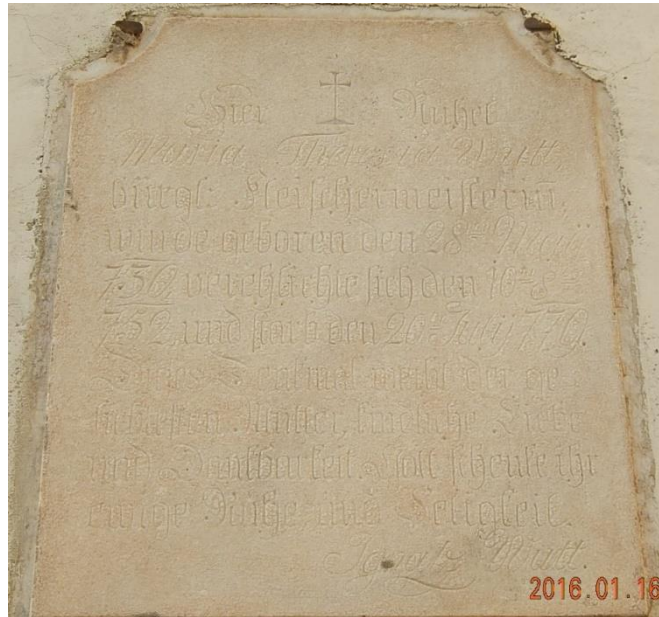 Hier Ruhet
Maria Theresia Wutt
bürgl: Fleischermeisterin,
wurde geborен den 28ten
verehlichte sich den 16ten
und starb den 26t Juny
Dieses Denkmal weiht der ge
liebtesten Mutter, kindliche Liebe
und Dankbarkeit. Gott schenke ihr
ewige Ruhe und Seligkeit.
Ignatz Wutt.
2016.01.16